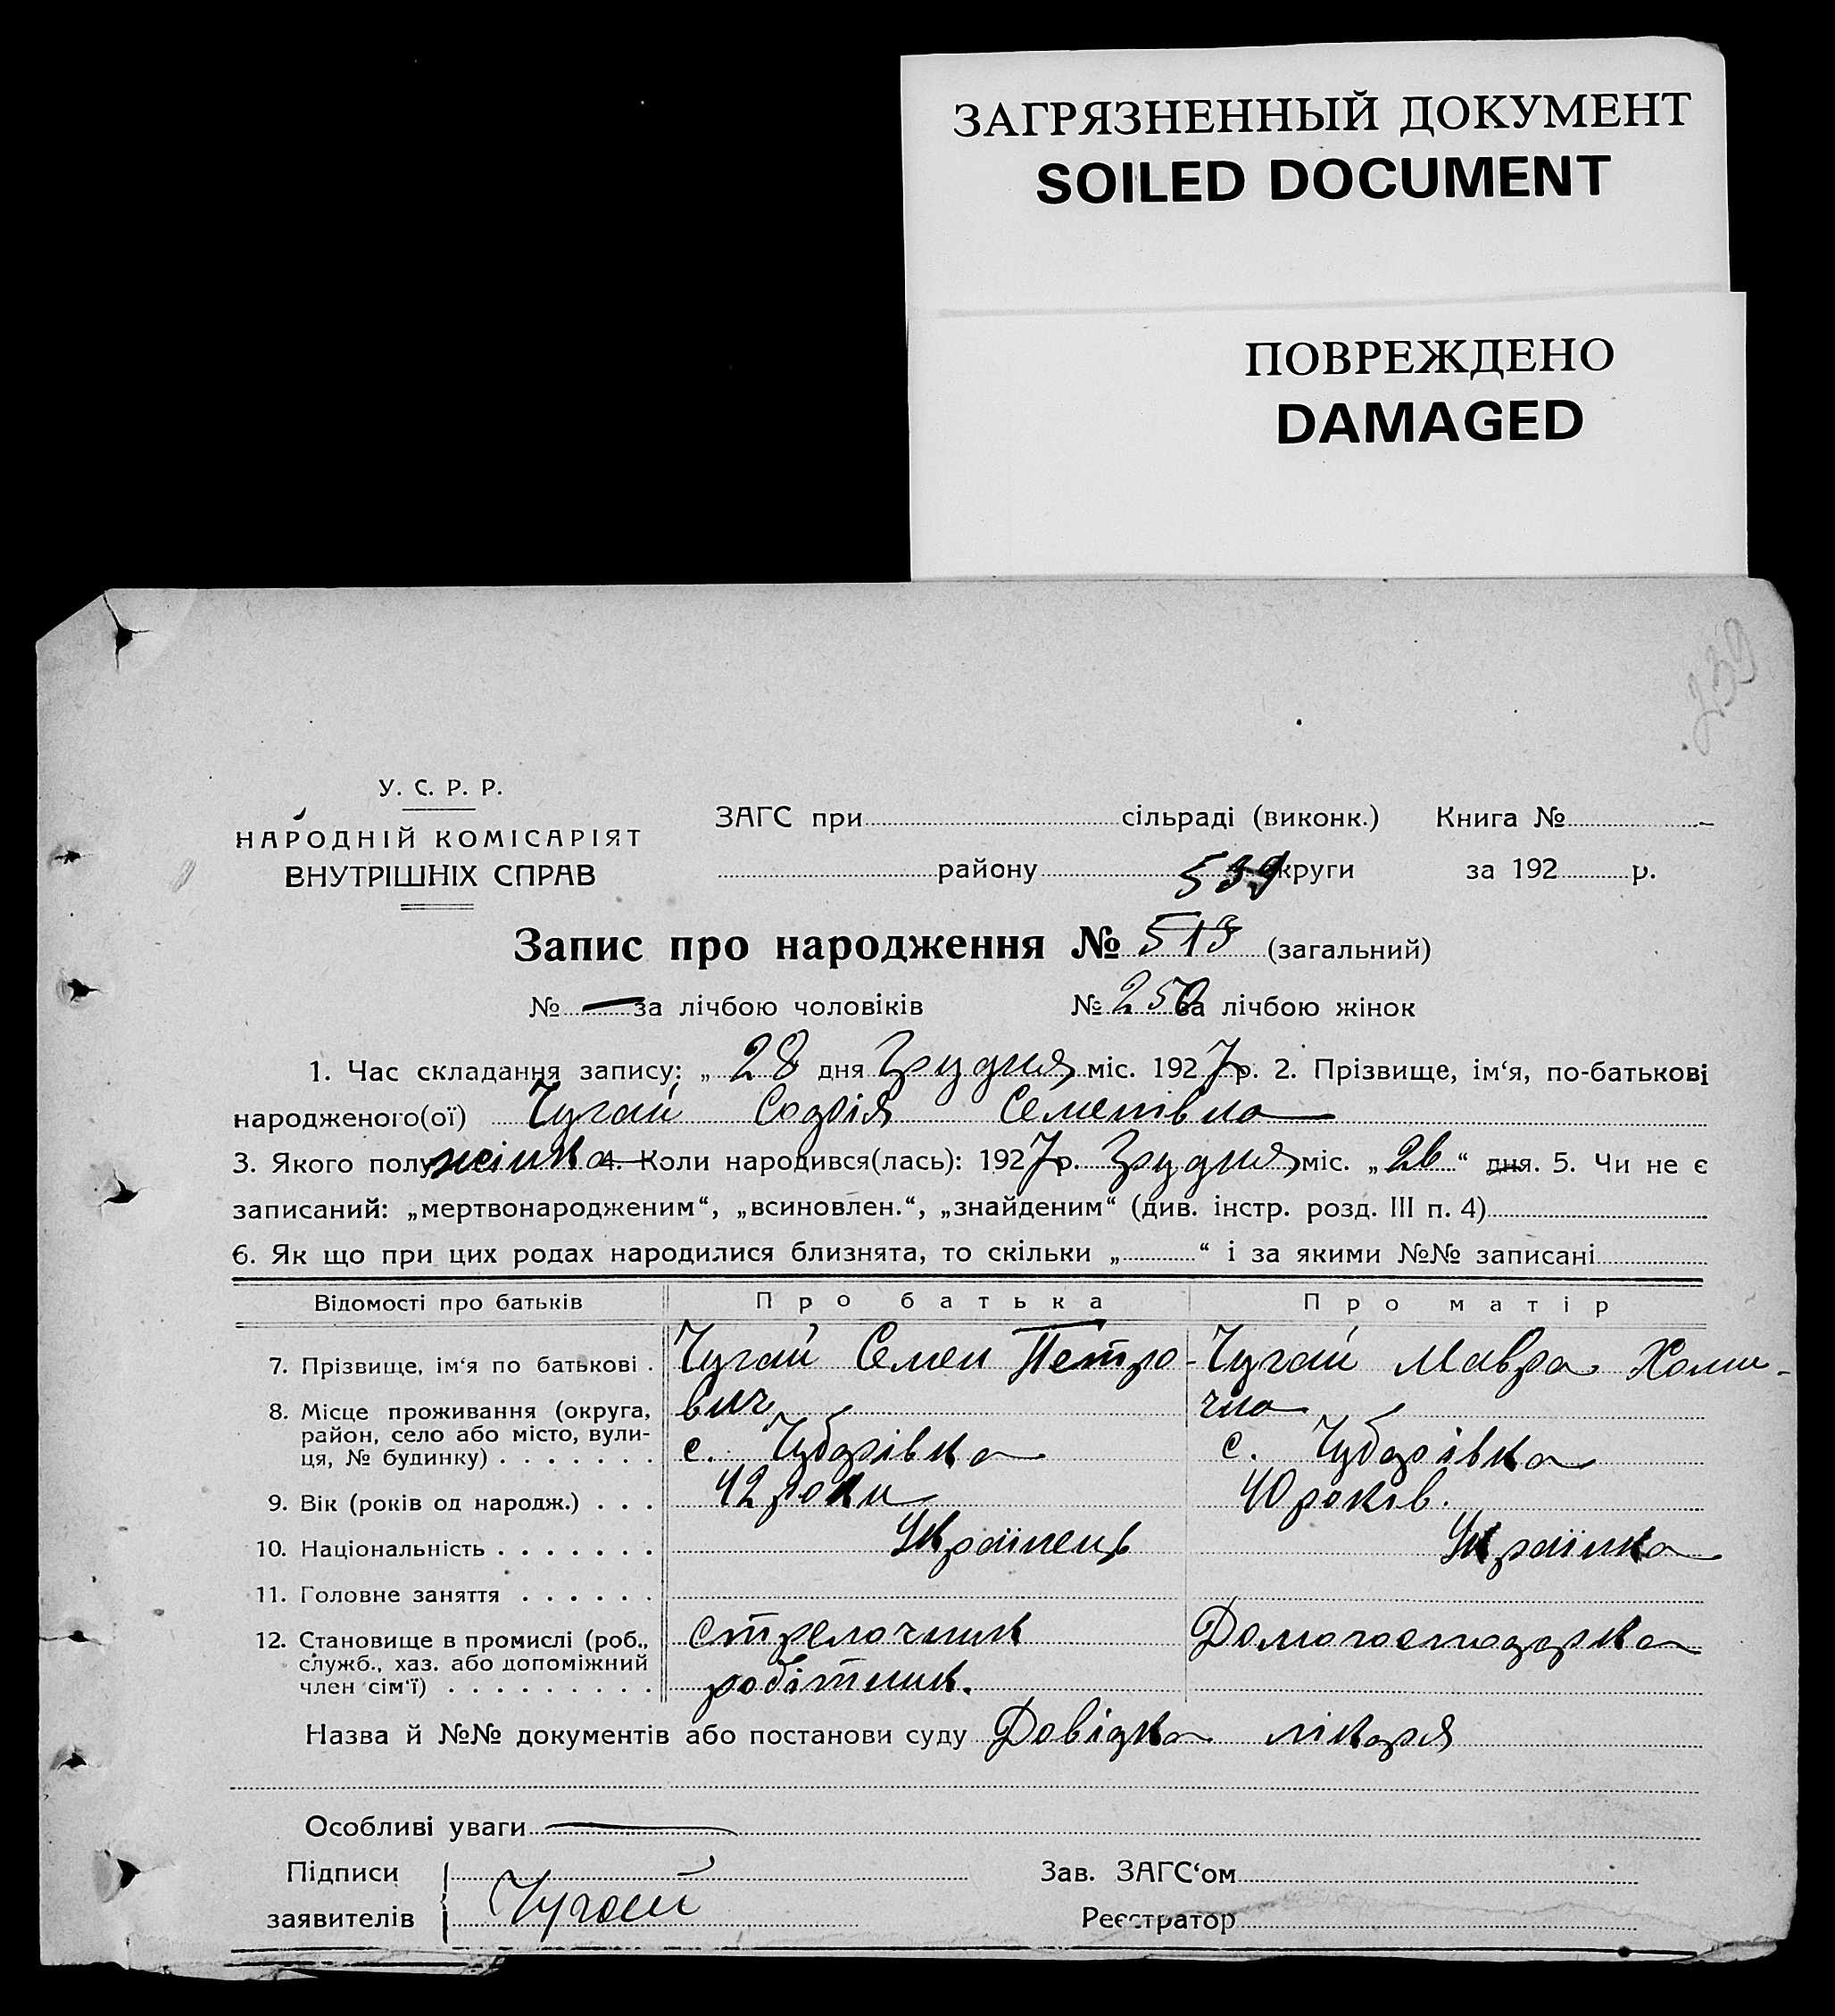 ЗАГРЯЗНЕННЫЙ ДОКУМЕНТ
SOILED DOCUMENT
ПОВРЕЖДЕНО
DAMAGED
239
У. С. Р. Р.
НАРОДНІЙ КОМІСАРІЯТ
ВНУТРІШНІХ СПРАВ
ЗАГС при сільраді (виконк.) Книга №
району округи за 192 р.
539
Запис про народження № 519 (загальний)
№ — за лічбою чоловіків № 250 за лічбою жінок
1. Час складання запису: „ 28 дня Грудня міс. 1927 р. 2. Прізвище, ім‘я, по-батькові
народженого(ої) Чугай Софія Семенівна
3. Якого полу жінка 4. Коли народився(лась): 1927 р. Грудня міс. „26“ дня. 5. Чи не є
записаний: „мертвонародженим“, „всиновлен.“, „знайденим“ (див. інстр. розд. III п. 4)
6. Як що при цих родах народилися близнята, то скільки „ “ і за якими №№ записані
Відомості про батьків Про батька Про матір
7. Прізвище, ім‘я по батькові . Чугай Семен Петро- Чугай Мавра Хоми-
вич чна
8. Місце проживання (округа,
район, село або місто, вули-
ця, № будинку) . . . . . . . с. Чубарівка с. Чубарівка
9. Вік (років од народж.) . . . 42 роки 40 років.
10. Національність . . . . . . . Українець Українка
11. Головне заняття . . . . . .
12. Становище в промислі (роб., стрелочник Домогосподарка
служб., хаз. або допоміжний
член сім‘ї) . . . . . . . . . робітник.
Назва й №№ документів або постанови суду Довідка лікаря
Особливі уваги —
Підписи Зав. ЗАГС‘ом
заявителів Чугай Реєстратор